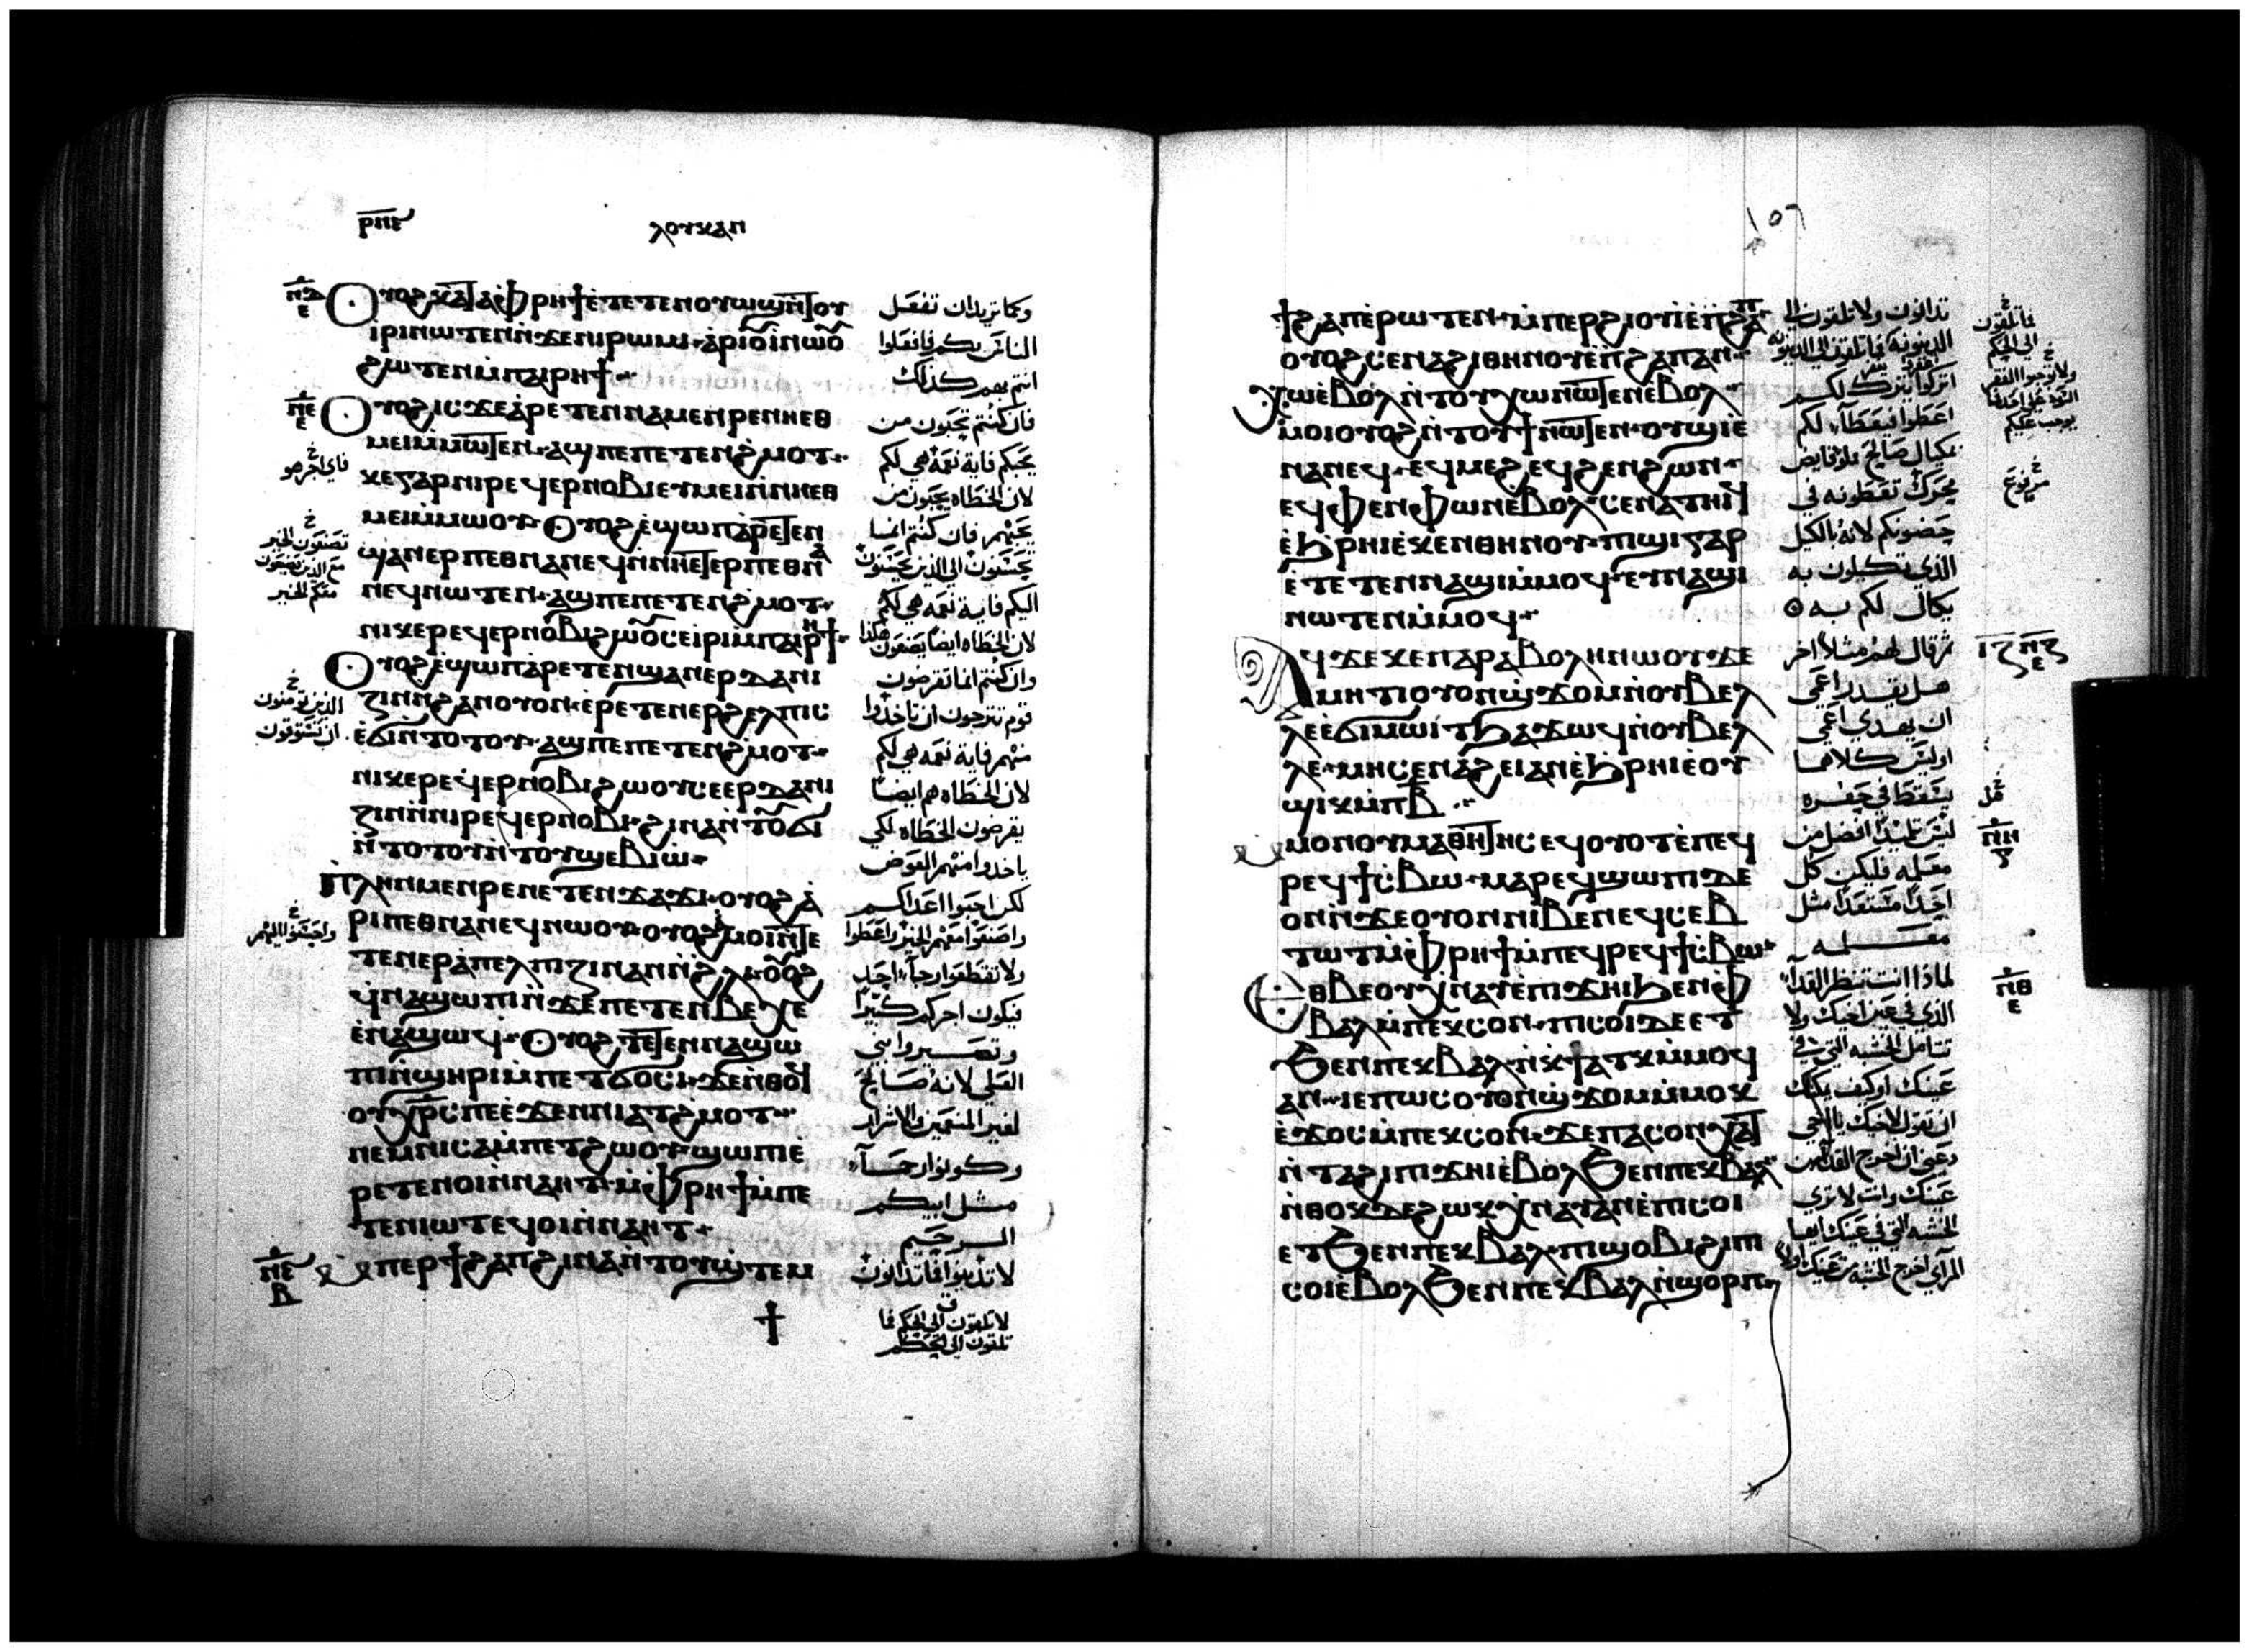 ⲣⲡⲉ
ⲗⲟⲩⲕⲁⲛ
ⲟⲩⲟϩ ⲕⲁⲧⲁⲫⲣⲏϯ ⲉⲧⲉⲧⲉⲛⲟⲩⲱϣ ⲛⲧⲟⲩ
ⲓⲣⲓ ⲛⲱⲧⲉⲛ ⲛϫⲉⲛⲓⲣⲱⲙⲓ ⲁⲣⲓⲟⲩⲓ ⲛⲱⲟⲩ
ϩⲱⲧⲉⲛ ⲙⲡⲁⲓⲣⲏϯ
ⲟⲩⲟϩ ⲓⲥϫⲉ ⲁⲣⲉⲧⲉⲛⲛⲁⲙⲉⲛⲣⲉ ⲛⲏⲉⲑ
ⲙⲉⲓ ⲙⲙⲱⲧⲉⲛ ⲁϣ ⲡⲉ ⲡⲉⲧⲉⲛϩⲙⲟⲧ
ⲕⲉⲅⲁⲣ ⲛⲓⲣⲉϥⲉⲣⲛⲟⲃⲓ ⲉⲩⲙⲉⲓ ⲛⲛⲏⲉⲑ
ⲙⲉⲓ ⲙⲙⲱⲟⲩ ⲟⲩⲟϩ ⲉϣⲱⲡ ⲁⲣⲉⲧⲉⲛ
ϣⲁⲛⲉⲣⲡⲉⲑⲛⲁⲛⲉϥ ⲛⲛⲏⲉⲧⲉⲣⲡⲉⲑⲛⲁ
ⲛⲉϥ ⲛⲱⲧⲉⲛ ⲁϣ ⲡⲉ ⲡⲉⲧⲉⲛϩⲙⲟⲧ
ⲛⲓⲕⲉⲣⲉϥⲉⲣⲛⲟⲃⲓ ϩⲱⲟⲩ ⲥⲉⲓⲣⲓ ⲙⲡⲁⲓⲣⲏϯ
ⲟⲩⲟϩ ⲉϣⲱⲡ ⲁⲣⲉⲧⲉⲛϣⲁⲛⲉⲣⲇⲁⲛⲓ
ⲍⲓⲛ ⲛϩⲁⲛⲟⲩⲟⲛ ⲉⲣⲉⲧⲉⲛⲉⲣϩⲉⲗⲡⲓⲥ
ⲉϭⲓ ⲛⲧⲟⲧⲟⲩ ⲁϣ ⲡⲉ ⲡⲉⲧⲉⲛϩⲙⲟⲧ
ⲛⲓⲕⲉⲣⲉϥⲉⲣⲛⲟⲃⲓ ϩⲱⲟⲩ ⲥⲉⲉⲣⲇⲁⲛⲓ
ⲍⲓⲛ ⲛⲛⲓⲣⲉϥⲉⲣⲛⲟⲃⲓ ϩⲓⲛⲁ ⲛⲧⲟⲩϭⲓ
ⲛⲧⲟⲧⲟⲩ ⲛⲧⲟⲩϣⲉⲃⲓⲱ
ⲡⲗⲏⲛ ⲙⲉⲛⲣⲉ ⲛⲉⲧⲉⲛϫⲁϫⲓ ⲟⲩⲟϩ ⲁ
ⲣⲓⲡⲉⲑⲛⲁⲛⲉϥ ⲛⲱⲟⲩ ⲟⲩⲟϩ ⲙⲟⲓ ⲛⲧⲉ
ⲧⲉⲛⲉⲣⲁⲡⲉⲗⲡⲓⲍⲓⲛ ⲁⲛ ⲛϩⲗⲓ ⲟⲩⲟϩ
ϥⲛⲁϣⲱⲡⲓ ⲛϫⲉⲡⲉⲧⲉⲛⲃⲉⲭⲉ
ⲉⲛⲁϣⲱϥ ⲟⲩⲟϩ ⲧⲉⲧⲉⲛⲛⲁϣⲱ
ⲡⲓ ⲛϣⲏⲣⲓ ⲙⲡⲉⲧϭⲟⲥⲓ ϫⲉ ⲛⲑⲟϥ
ⲟⲩⲭⲣⲥ ⲡⲉ ⲉϫⲉⲛ ⲛⲓⲁⲧϩⲙⲟⲧ
ⲛⲉⲙ ⲛⲓⲥⲁⲙⲡⲉⲧϩⲱⲟⲩ ϣⲱⲡⲓ ⲉ
ⲣⲉⲧⲉⲛⲟⲓ ⲛⲛⲁⲏⲧ ⲙⲫⲣⲏϯ ⲙⲡⲉ
ⲧⲉⲛⲓⲱⲧ ⲉϥⲟⲓ ⲛⲛⲁⲏⲧ
ⲙⲡⲉⲣϯϩⲁⲡ ϩⲓⲛⲁ ⲛⲧⲟⲩϣⲧⲉⲙ
وكما تريدان تفعل
الناس بكم فافعلوا
انتم بهم كذلك
فان كنتم تحبون من
يحبكم فاية نعمه هي لكم
لان الخطاه يحبون من
يحبهم فان كنتم انما
تحسنون الي الذين يحسنون
اليكم فاية نعمه هي لكم
لان الخطاه ايضا يصنعون هكذا
وان كنتم انما تقرضون
قوم ترجون ان تاخذوا
منهم فاية نعمه هي لكم
لان الخطاه هم ايضا
يقرضون الخطاه لكي
ياخذوا منهم العوض
لكن احبوا اعداكم
واصنعوا معهم الخير واعطوا
ولا تقطعوا رجآ احد
فيكون اجركم كثيرا
وتصيروا بني
العلي لانه صالح
لغير المنعمين والاشرار
وكونوا رحمآ
مثل ابيكم
الرحيم
لا تدينوا فما تدانون
لا تلقون الي الحكم فما
تلقون الي الحكم
فاي اجر هو
تصنعون الخير
مع الذين يصنعون
معكم الخير
الذين تومنون
ان تستوفون
واحسنوا اليهم
١٥٦
ϯϩⲁⲡ ⲉⲣⲱⲧⲉⲛ ⲙⲡⲉⲣϩⲓⲟⲩⲓ ⲉⲡϩⲁⲡ
ⲟⲩⲟϩ ⲥⲉⲛⲁϩⲓⲑⲏⲛⲟⲩ ⲉⲡϩⲁⲡ ⲁⲛ
ⲭⲱ ⲉⲃⲟⲗ ⲛⲧⲟⲩⲭⲱ ⲛⲱⲧⲉⲛ ⲉⲃⲟⲗ
ⲙⲟⲓ ⲟⲩⲟϩ ⲛⲧⲟⲩϯ ⲛⲱⲧⲉⲛ ⲟⲩϣⲓ ⲉ
ⲛⲁⲛⲉϥ ⲉϥⲙⲉϩ ⲉϥϩⲉⲛϩⲱⲛ
ⲉϥⲫⲉⲛⲫⲱⲛ ⲉⲃⲟⲗ ⲥⲉⲛⲁⲧⲏⲓϥ
ⲉϧⲣⲏⲓ ⲉⲕⲉⲛⲑⲏⲛⲟⲩ ⲡⲓϣⲓ ⲅⲁⲣ
ⲉⲧⲉⲧⲉⲛⲛⲁϣⲓ ⲙⲙⲟϥ ⲉⲩⲛⲁϣⲓ
ⲛⲱⲧⲉⲛ ⲙⲙⲟϥ
ⲁϥϫⲉ ⲕⲉⲡⲁⲣⲁⲃⲟⲗⲏ ⲛⲱⲟⲩ ϫⲉ
ⲙⲏⲧⲓ ⲟⲩⲟⲛϣϫⲟⲙ ⲛⲟⲩⲃⲉⲗ
ⲗⲉ ⲉϭⲓⲙⲱⲓⲧ ϧⲁϫⲱϥ ⲛⲟⲩⲃⲉⲗ
ⲗⲉ ⲙⲏ ⲥⲉⲛⲁϩⲉⲓ ⲁⲛ ⲉϧⲣⲏⲓ ⲉⲟⲩ
ϣⲓⲕ ⲙⲡⲃ
ⲙⲙⲟⲛ ⲟⲩⲙⲁⲑⲏⲧⲏⲥ ⲉϥⲟⲩⲟⲧ ⲉⲡⲉϥ
ⲣⲉϥϯⲥⲃⲱ ⲙⲁⲣⲉϥϣⲱⲡⲓ ⲇⲉ
ⲟⲛ ⲛϫⲉⲟⲩⲟⲛ ⲛⲓⲃⲉⲛ ⲉϥⲥⲉⲃ
ⲧⲱⲧ ⲙⲫⲣⲏϯ ⲙⲡⲉϥⲣⲉϥϯⲥⲃⲱ
ⲉⲑⲃⲉⲟⲩ ⲭⲛⲁⲩ ⲉⲡⲓϫⲏⲓ ϧⲉⲛⲫ
ⲃⲁⲗ ⲙⲡⲉⲕⲥⲟⲛ ⲡⲓⲥⲟⲓ ⲇⲉ ⲉⲧ
ϧⲉⲛ ⲡⲉⲕⲃⲁⲗ ⲛⲕϯⲁⲧⲕ ⲙⲙⲟϥ
ⲁⲛ ⲓⲉ ⲡⲱⲥ ⲟⲩⲟⲛϣϫⲟⲙ ⲙⲙⲟⲕ
ⲉϫⲟⲥ ⲙⲡⲉⲕⲥⲟⲛ ϫⲉ ⲡⲁⲥⲟⲛ ⲭⲁⲧ
ⲛⲧⲁϩⲓ ⲡⲓϫⲏⲓ ⲉⲃⲟⲗ ϧⲉⲛ ⲡⲉⲕⲃⲁⲗ
ⲛⲑⲟⲕ ⲇⲉ ϩⲱⲕ ⲭⲛⲁⲩ ⲁⲛ ⲉⲡⲓⲥⲟⲓ
ⲉⲧϧⲉⲛ ⲡⲉⲕⲃⲁⲗ ⲡⲓϣⲟⲃⲓ ϩⲓ ⲡⲓ
ⲥⲟⲓ ⲉⲃⲟⲗ ϧⲉⲛ ⲡⲉⲕⲃⲁⲗ ⲛϣⲟⲣⲡ
تدانون ولا تلقون الي
الدينونه فما تلقون الي الدينونه
اتركوا يترك لكم
اعطوا فيعطآ لكم
بمكيال صالح ملو فايض
محرك تعطونه في
حضونكم لانه بالكيل
الذي تكيلون به
يكال لكم به
ثم قال لهم مثلا اخر
هل يقدر اعمي
ان يهدي اعمي
اوليس كلاهما
يسقطا في حفره
ليس تلميذا افضل من
معلمه فليكن كل
احدا مستعدا مثل
معلمه
لماذا انت تنظر القذآ
الذي في عين اخيك ولا
تتامل الخشبه التي في
عينك او كيف يمكنك
ان تقول لاخيك يا اخي
دعني ان اخرج القذا من
عينك وانت لا تري
الخشبه التي في عينك ايها
المرآي اخرج الخشبه من عينك اولا
فما تلقون
الي الحكم